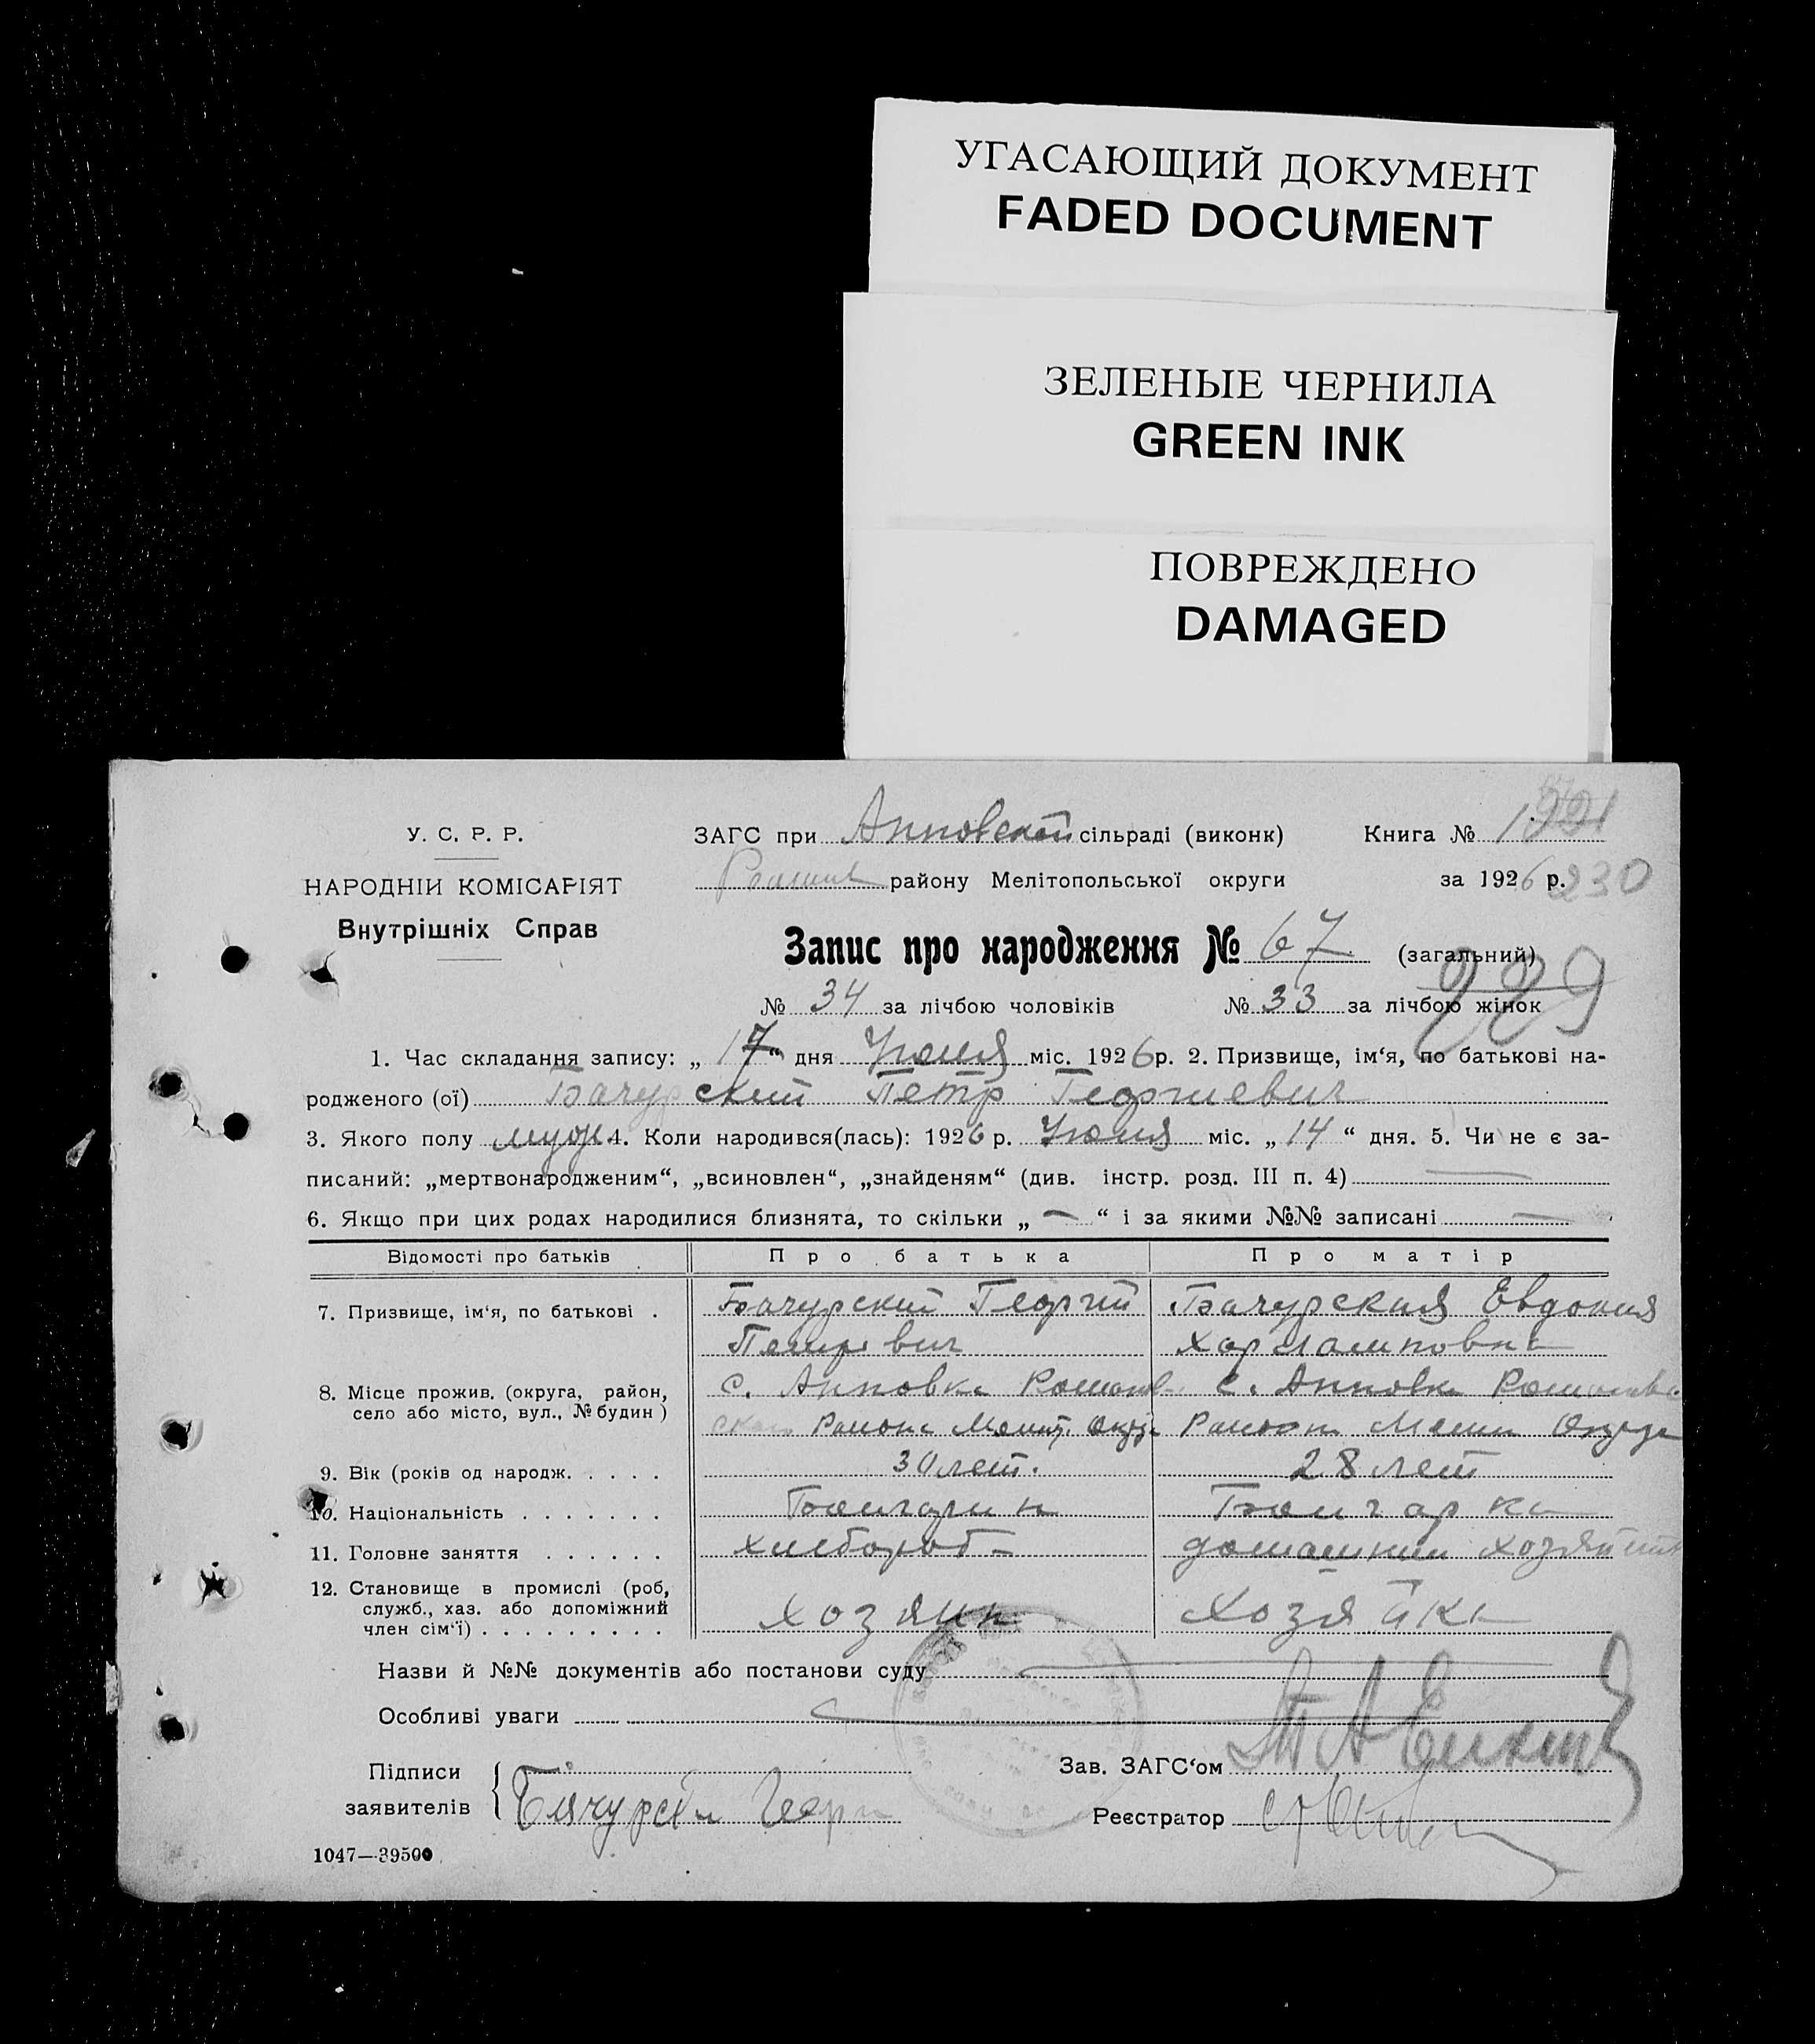 УГАСАЮЩИЙ ДОКУМЕНТ
FADED DOCUMENT
ЗЕЛЕНЫЕ ЧЕРНИЛА
GREEN INK
ПОВРЕЖДЕНО
DAMAGED
У. С. Р. Р.
НАРОДНІЙ КОМІСАРІЯТ
Внутрішніх Справ
ЗАГС при Анновской сільраді (виконк) Книга №
району Мелітопольської округи за 1926 р. 230
Запис про народження № 67 (загальний)
229
№ 34 за лічбою чоловіків № 33 за лічбою жінок
1. Час складання запису: „ 17 “ дня Июня міс. 1926 р. 2. Призвище, ім‘я, по батькові на-
родженого (ої) Бачурский Петр Георгиевич
3. Якого полу муж 4. Коли народився(лась): 1926 р. Июня міс. „ 14 “ дня. 5. Чи не є за-
писаний: „мертвонародженим“, „всиновлен“, „знайденям“ (див. інстр. розд. III п. 4) —
6. Якщо при цих родах народилися близнята, то скільки „ — “ і за якими №№ записані —
Відомості про батьків Про батька Про матір
7. Призвище, ім‘я, по батькові . Бачурский Георгий Бачурская Евдокия
Петрович Харламповна
8. Місце прожив. (округа, район, с. Анновка с. Анновка
село або місто, вул., № будин ) Района Мелит. Округа Района Мелит Округа
9. Вік (років од народж. . . . . 30 лет. 28 лет
10. Національність . . . . . . . Болгарин Болгарка
11. Головне заняття . . . . . . хлебороб домашнии
12. Становище в промислі (роб, служб., хаз. або допоміжний член сім‘ї) . . . . . . . . . хозяин Хозяйка
Назви й №№ документів або постанови суду
Особливі уваги
Підписи заявителів Бячурски Геори
Зав. ЗАГС‘ом
Реєстратор
1047—39500